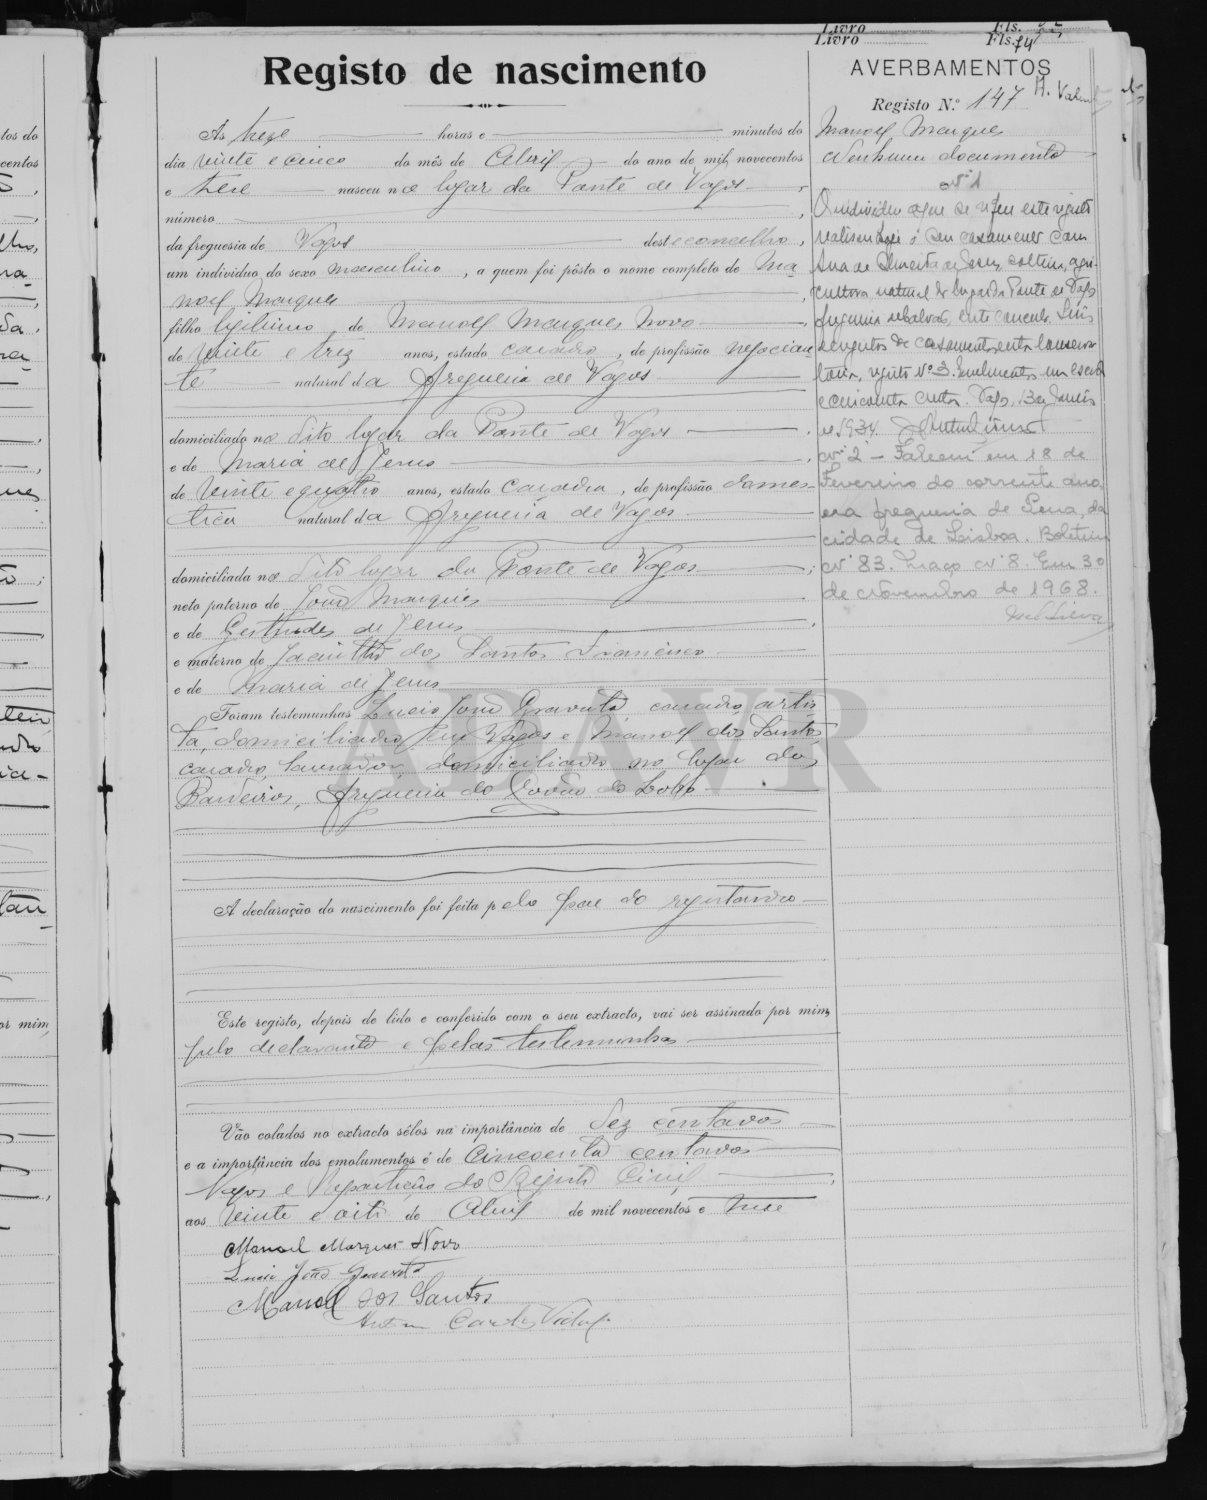 Livro Fls.
Livro Fls. 74
Registo de nascimento
AVERBAMENTOS
Registo N.º 147
Manoel Marques
Nenhum documento
Nº 1
O individuo a que se refere este registo
realisou hoje o seu casamento com
Ana de Oliveira de Jesus, solteira, agri-
cultora natural do lugar da Ponte de Vagos
freguesia de concelho.
assentos de casamento desta conserva-
toria, registo Nº 3. Emolumentos um escudo
e cincoenta centavos. Vagos, 13 de Janeiro
de 1934.
Nº 2 — Faleceu em 18 de
Fevereiro do corrente ano,
na freguesia de Pena, da
cidade de Lisboa. Boletim
Nº 83. Maço Nº 8. Em 30
de Novembro de 1968.
As treze horas e minutos do
dia vinte e cinco do mês de Abril do ano de mil novecentos
e treze nasceu no logar da Ponte de Vagos
número
da freguesia de Vagos deste concelho,
um individuo do sexo masculino, a quem foi pôsto o nome completo de Ma-
noel Marques
filho legitimo de Manoel Marques Novo
de vinte e trez anos, estado casado, de profissão negocian
te natural da freguesia de Vagos
domiciliado no dito logar da Ponte de Vagos
e de Maria de Jesus
de vinte e quatro anos, estado casada, de profissão domes-
tica natural da freguesia de Vagos
domiciliada no dito logar da Ponte de Vagos
neto paterno de João Marques
e de Gertrudes de Jesus
e materno de Jacintho dos Santos Francisco
e de Maria de Jesus
Foram testemunhas Lucio João Gravato, casado, artis
ta, domiciliado em Vagos e Manoel dos Santos,
casado, lavrador, domiciliado no logar dos
freguesia do Covão do Lobo
ADAVR
A declaração do nascimento foi feita pelo pae do registando
Este registo, depois de lido e conferido com o seu extracto, vai ser assinado por mim,
pelo declarante e pelas testemunhas
Vão colados no extracto sêlos na importância de dez centavos
e a importância dos emolumentos é de cincoenta centavos
Vagos e Repartição do Registo Civil
aos vinte e oito de Abril de mil novecentos e treze
Manoel Marques Novo
Lucio João Gravato
Manoel dos Santos